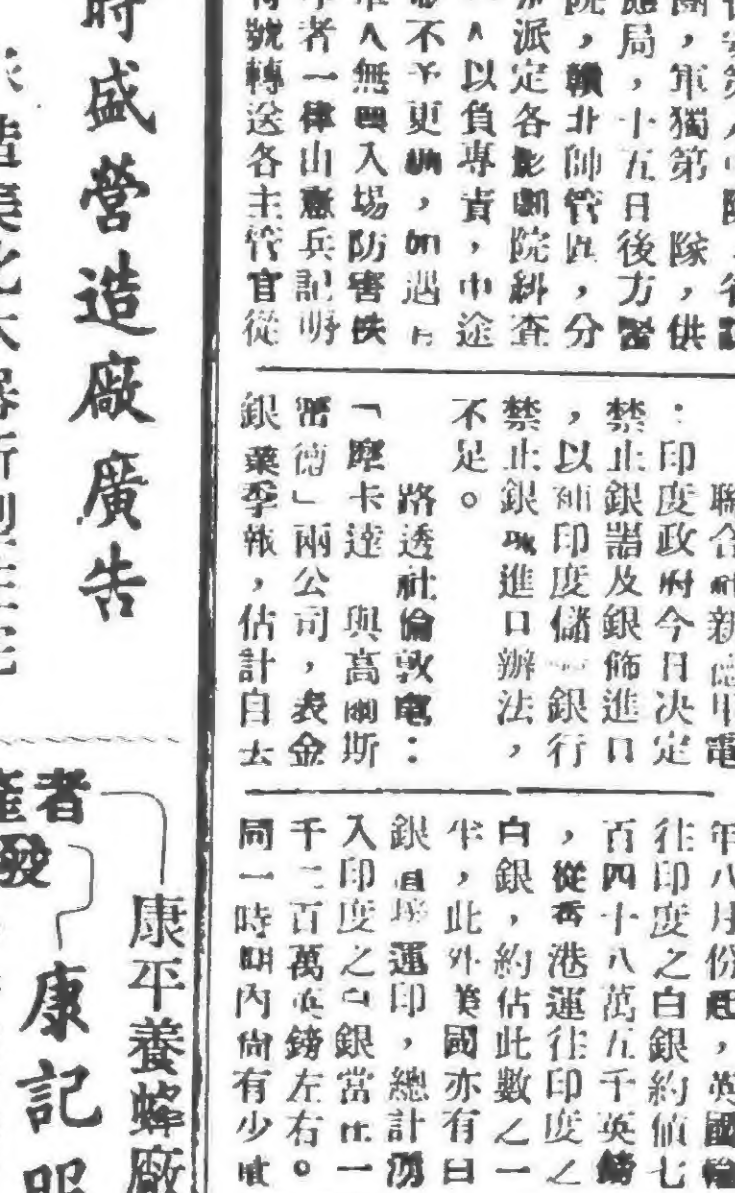 ，軍獨第　隊，供
應局，十五日後方
院，贛北師管區，分
派定各影劇院糾查
以負專責，中途
不予更調，如遇有
入無票入場防害秩
者一律由憲兵記明
號轉送各主管官從
聯合社新德里電
：印度政府今日决定
禁止銀器及銀飾進口
，以補印度儲　銀行
禁止銀　進口辦法，
不足。
路透社倫敦電：
「摩卡達　與高　斯
密德」兩公司，表金
銀業季報，估計自去
年八月份起，英國輸
往印度之白銀約值七
百四十八萬五千英鎊
，從香港運往印度之
白銀，約佔此數之一
半，此外美國亦有白
銀直接運印，總計湧
入印度之白銀當在一
千二百萬英鎊左右。
同一時期內尚有少
時盛營造廠廣告
康平養蜂廠
康記